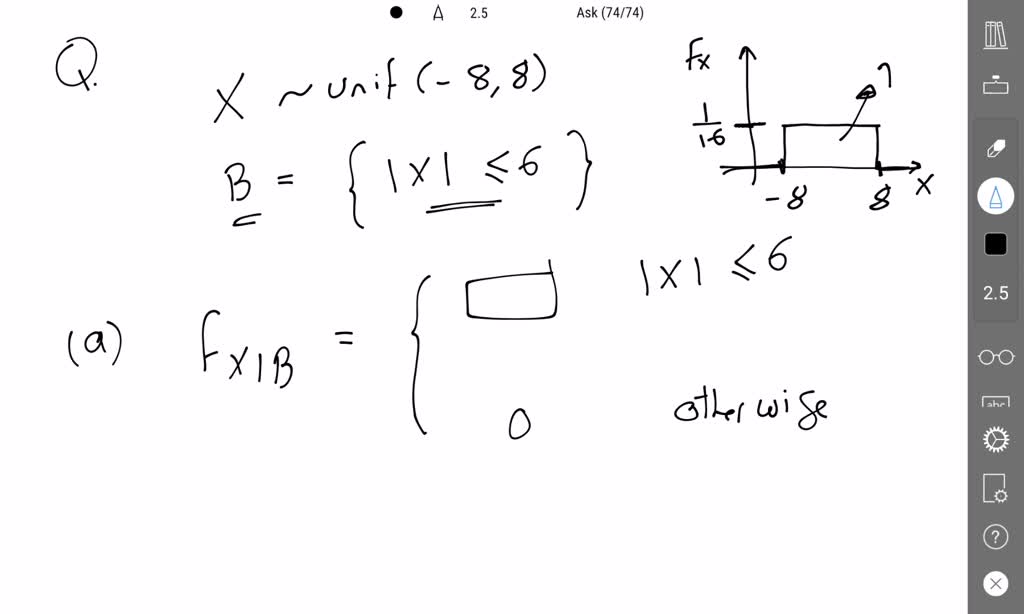 2.5 Ask (74/74)
Q.
X ~ unif (-8, 8)
B = { |X| ≤ 6 }
fx
1
1/16
-8 8 X
(a) fX|B = {
|X| ≤ 6
0 otherwise
2.5
abc
?